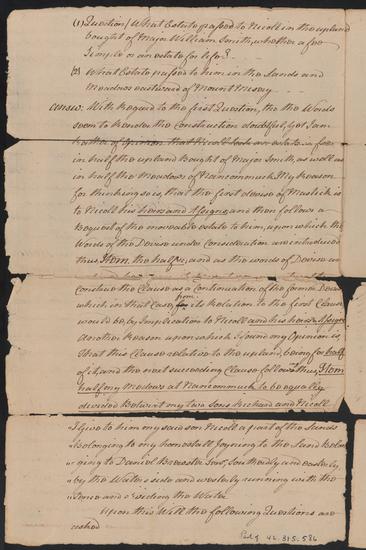 (1) Question/ What Estate passed to Nicoll in the upland
bought of Major William Smith, whether a fee
Simple or an estate for life?
(2) What Estate passed to him in the Lands and
Meadows eastward of Mount Misery.
Answ: With Regard to the first Question, tho the Words
seem to Render the Construction doubtfull, yet I am
Rather of Opinion that Nicoll took an estate in fee
in half the upland bought of Major Smith, as well as
in half the Meadows of Nancommuck. My Reason
for thinking so is, that the first devise of Mastick is
to Nicoll his heirs and Assigns, and then follows a
Bequest of the moveable estate to him, upon which the
Words of the Devise under Consideration are introduced
thus, Item, the half &c; and as the words of Devise
Construe the Clause as a Continuation of the former Devise
which in that Case from its Relation to the first Clause
would be, by Implication to Nicoll and his heirs & Assigns
Another Reason upon which I found my Opinion is
that this Clause relative to the upland, being for half
of it, and the next succeeding Clause follows thus, Item
half of my Medows at Nancommuck to be equally
divided betwixt my two sons Richard and Nicoll
"I give to him my said son Nicoll a part of the Lands
"belonging to my homestall Joyning to the Land
"ging to Daniel Brewster Southerdly and easterly
"by the Water side and westerly running with the
"fence and the Water.
Upon this Will the following Questions are
asked
42.315.586